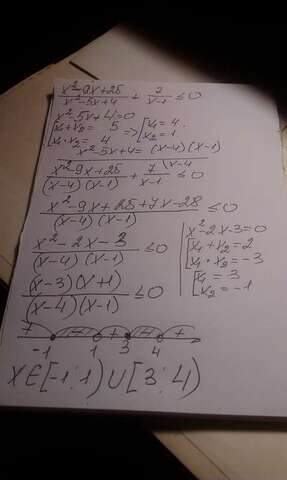 x²-9x+25/x²-5x+4 + 7/x-1 ≤0
x²-5x+4=0
[x₁+x₂= 5 => [x₁=4
[x₁·x₂= 4 [x₂=1
x²-5x+4=(x-4)(x-1)
x²-9x+25/(x-4)(x-1) + 7\x-4/x-1 ≤0
x²-9x+25+7x-28/(x-4)(x-1) ≤0
x²-2x-3/(x-4)(x-1) ≤0
(x-3)(x+1)/(x-4)(x-1) ≤0
x²-2x-3=0
[x₁+x₂=2
[x₁·x₂=-3
[x₁=3
[x₂=-1
+ - + - +
-1 1 3 4
XЄ[-1;1)U[3;4)